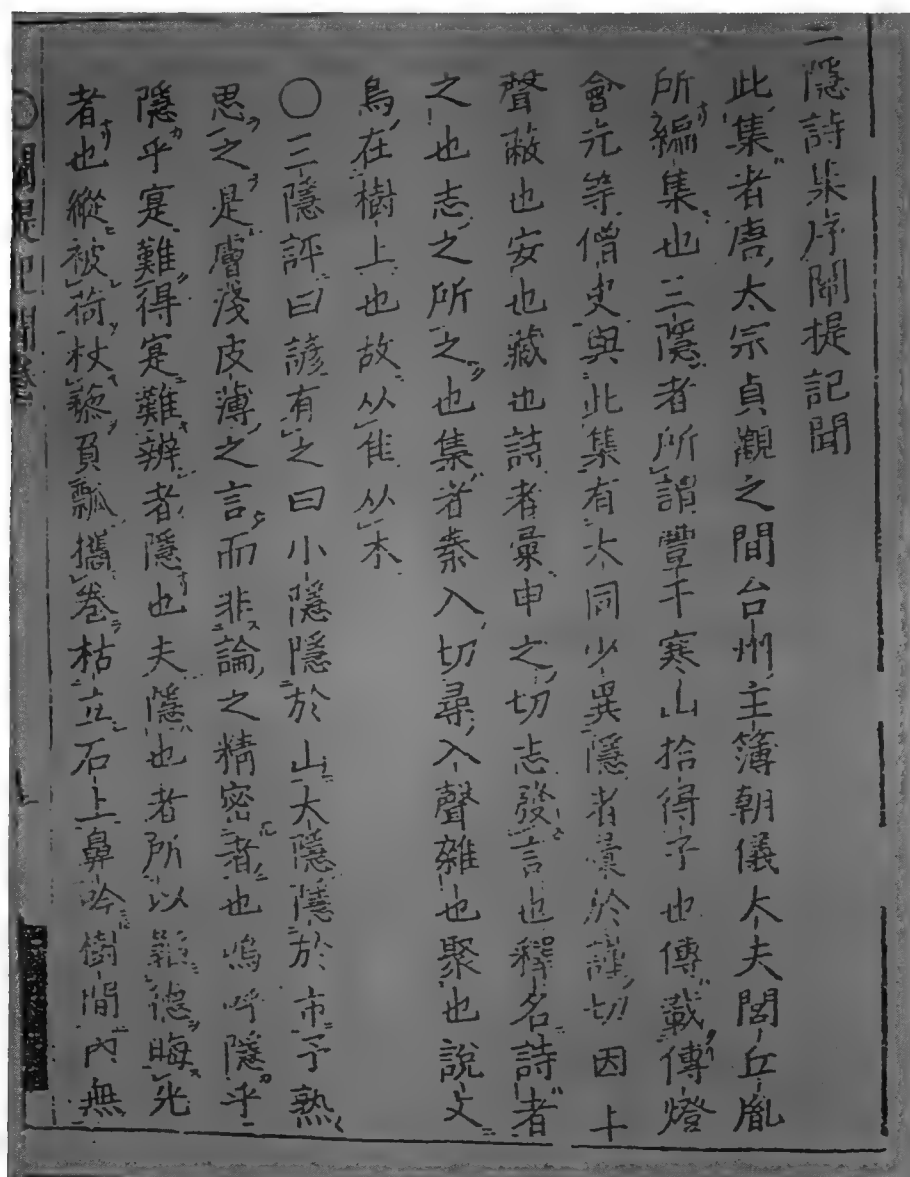 三隱詩集序闡提記聞
此集者唐太宗貞觀之間台州主簿朝儀大夫閭丘胤
所編集也三隱者所謂豐干寒山拾得子也傳載傳燈
會元等僧史與此集有大同少異隱者彙於謹切因上
聲蔽也安也藏也詩者彙申之切志發言也釋名詩者
之也志之所之也集者秦入切尋入聲雜也聚也說文
鳥在樹上也故从隹从木
○三隱評曰諺有之曰小隱隱於山大隱隱於市予熟
思之是膚淺皮薄之言而非論之精密者也嗚呼隱乎
隱乎寔難得寔難辨者隱也夫隱也者所以韜德晦光
者也縱被荷杖藜負瓢攜卷枯立石上鼻吟樹間內無